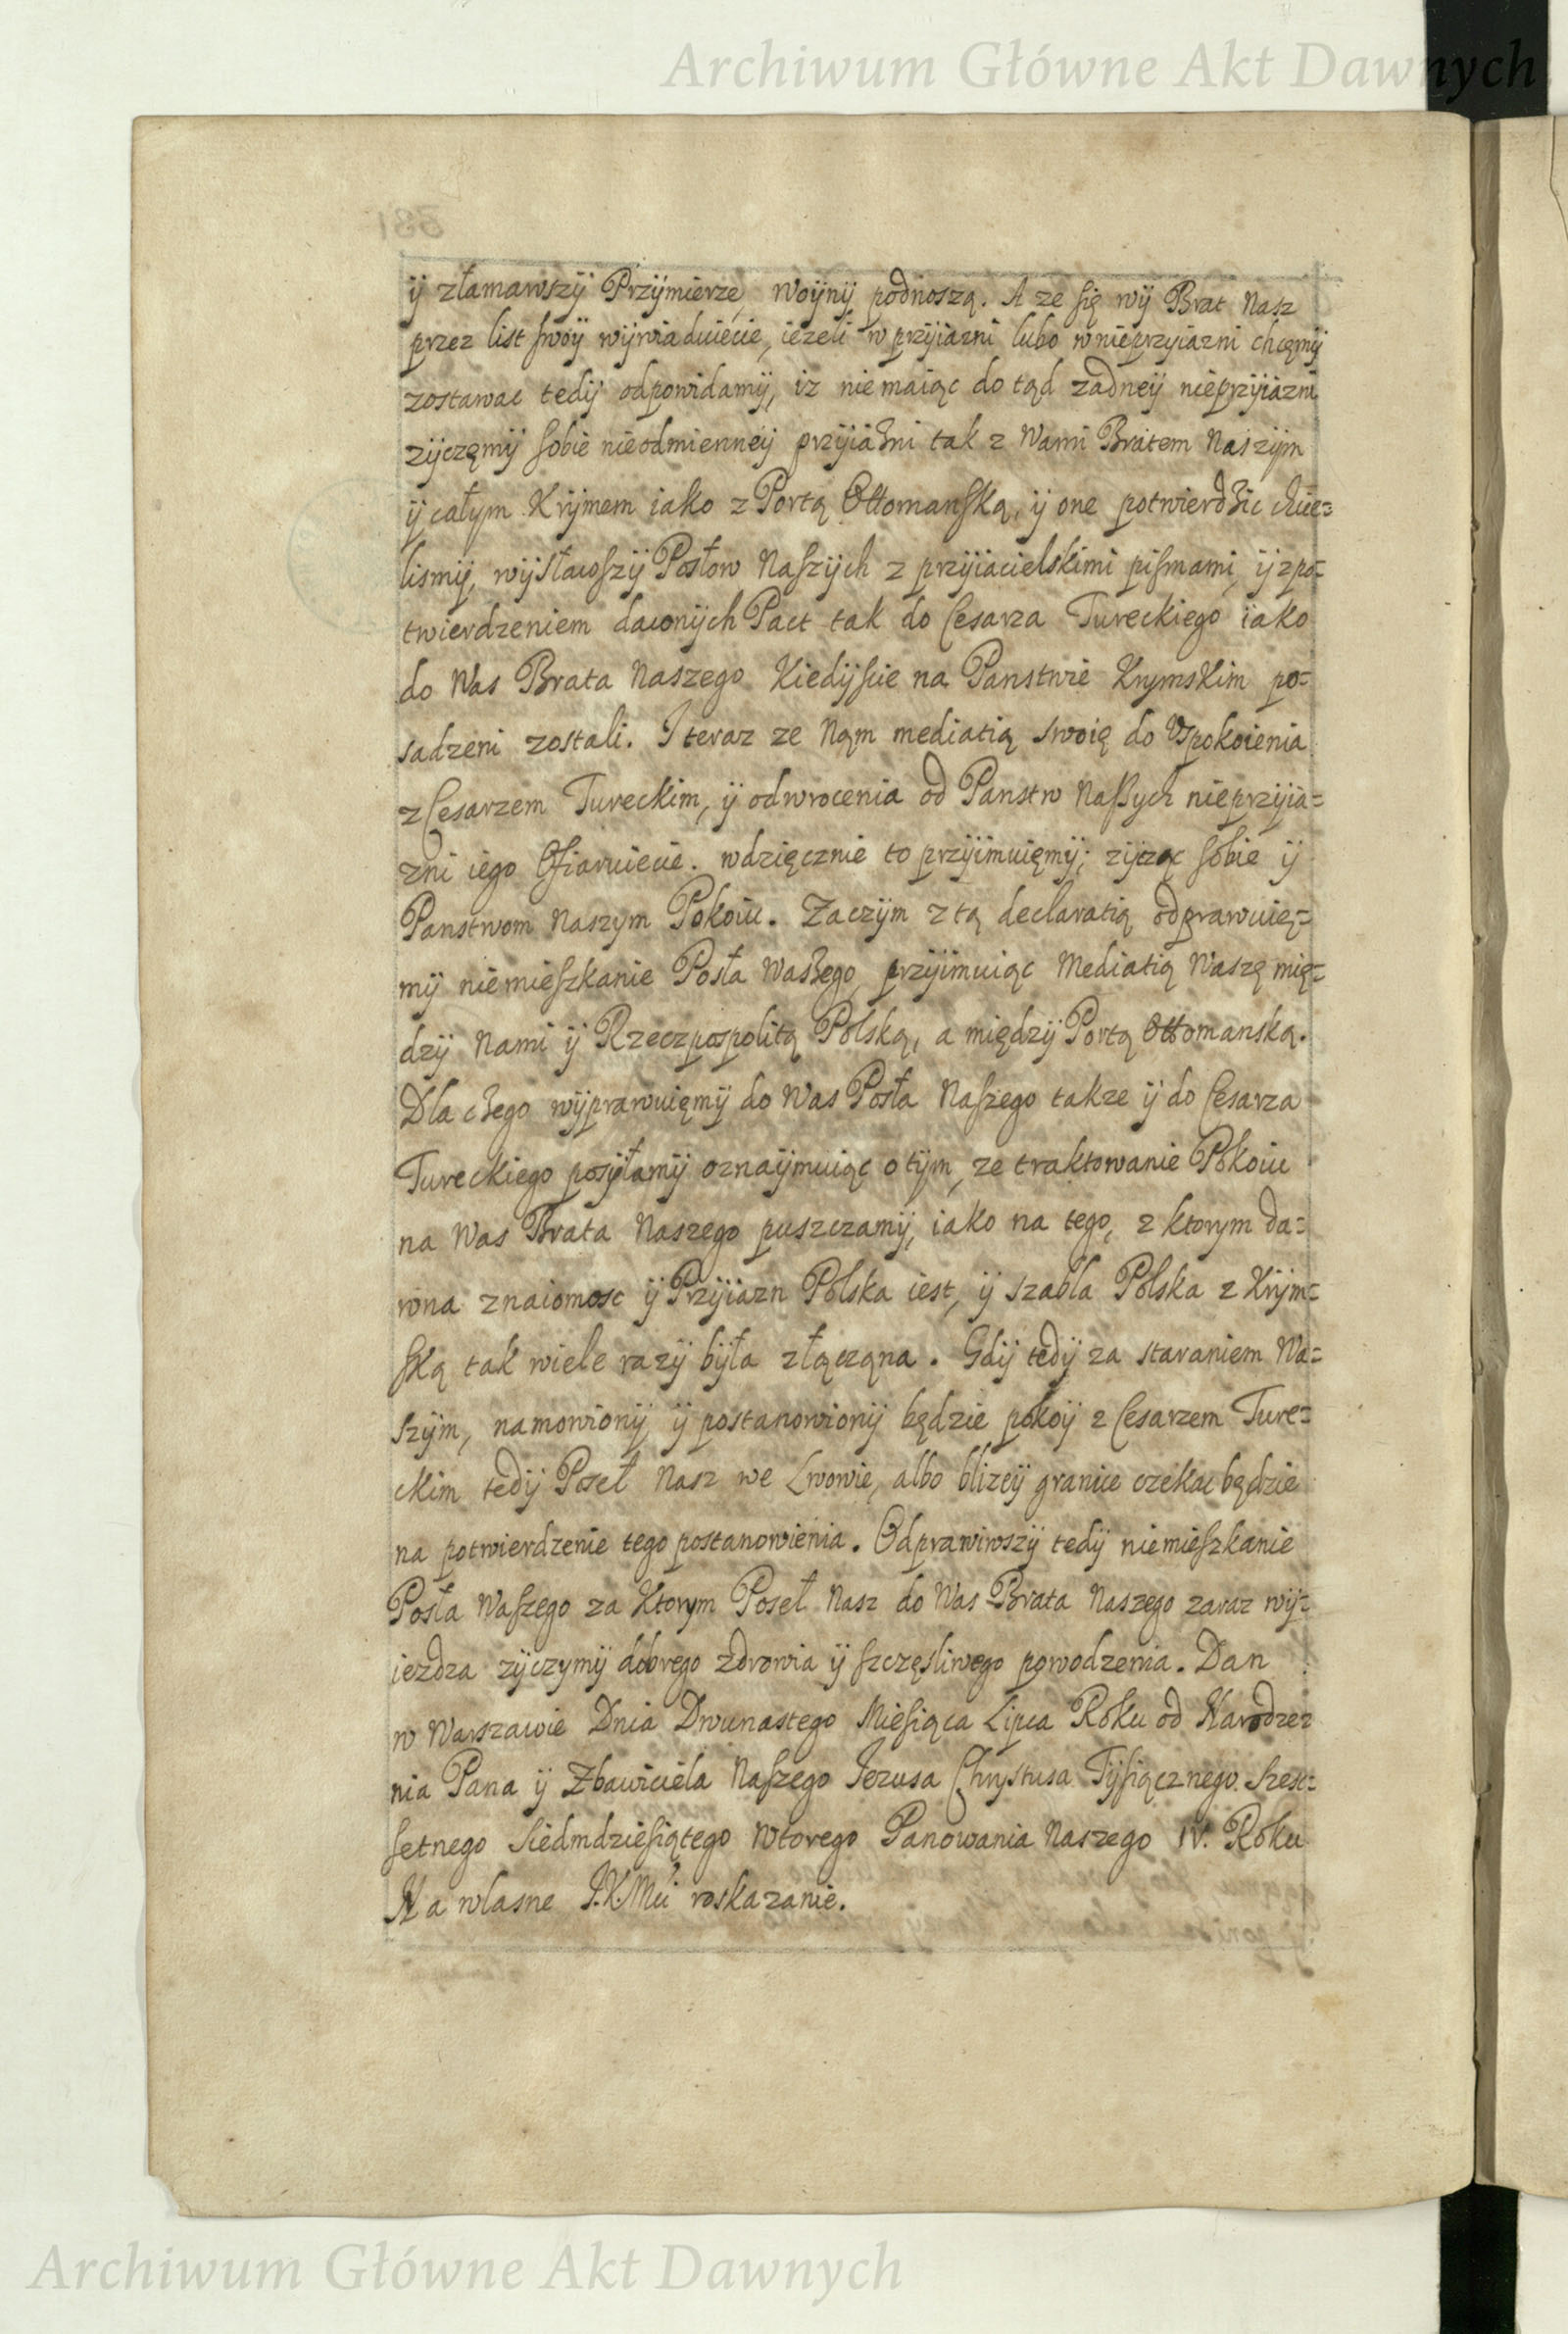 Archiwum Główne Akt Dawnych
ÿ złamawszÿ Przÿmierze, Woÿnÿ podnoszą. A ze się wÿ Brat Nasz
przez list swoÿ wÿwiaduiecie, iezeli w przÿiazni lubo w nieprzyiazni chcęmÿ
zostawac tedÿ odpowidamÿ, iz nie maiąc do tąd zadneÿ nieprzÿiazni
zÿczęmÿ sobie nieodmienneÿ przÿiazni tak z Wami Bratem Naszÿm
ÿ całym Krÿmem iako z Portą Ottomanską, ÿ one potwierdzic chcie=
lismÿ, wÿsławszÿ Posłow Naszÿch z przÿiacielskimi pismami, ÿ z po=
twierdzeniem dawnÿch Pact tak do Cesarza Tureckiego iako
do Was Brata Naszego Kiedÿscie na Panstwie Krymskim po=
sadzeni zostali. I teraz ze Nąm mediatią swoię do Uspokoienia
z Cesarzem Tureckim, ÿ odwrocenia od Panstw Naszych nieprzÿia=
zni iego Ofiaruiecie. wdzięcznie to przÿimuięmÿ; zÿcząc sobie ÿ
Panstwom Naszym Pokoiu. Zaczÿm z tą declaratią odprawuię=
mÿ niemieszkanie Posła Waszego, przÿimuiąc Mediatią Waszę mię=
dzÿ Nami ÿ Rzeczpospolitą Polską, a międzÿ Portą Ottomanską.
Dla czego wÿprawuięmÿ do Was Posła Naszego takze ÿ do Cesarza
Tureckiego posÿłamÿ oznaÿmuiąc o tÿm, ze traktowanie Pokoiu
na Was Brata Naszego puszczamÿ, iako na tego, z ktorym da=
wna znaiomosc ÿ Przÿiazn Polska iest, ÿ szabla Polska z Krÿm=
ską tak wiele razÿ bÿła złącząna. Gdÿ tedÿ za staraniem Wa=
szÿm, namowionÿ ÿ postanowionÿ będzie pokoÿ z Cesarzem Ture=
ckim tedÿ Poseł Nasz we Lwowie, albo blizeÿ granice czekac będzie
na potwierdzenie tego postanowienia. Odprawiwszÿ tedÿ niemieszkanie
Posła Waszego za Ktorym Poseł Nasz do Was Brata Naszego zaraz wÿ=
iezdza zÿczymÿ dobrego zdrowia ÿ szczęsliwego powodzenia. Dan
w Warszawie Dnia Dwunastego Miesiąca Lipca Roku od Narodze=
nia Pana ÿ Zbawiciela Naszego Jezusa Chrystusa Tÿsiącznego Szesc=
setnego Siedmdziesiątego Wtorego Panowania Naszego IV. Roku
Na wlasne J.K.Mci roskazanie.
Archiwum Główne Akt Dawnych